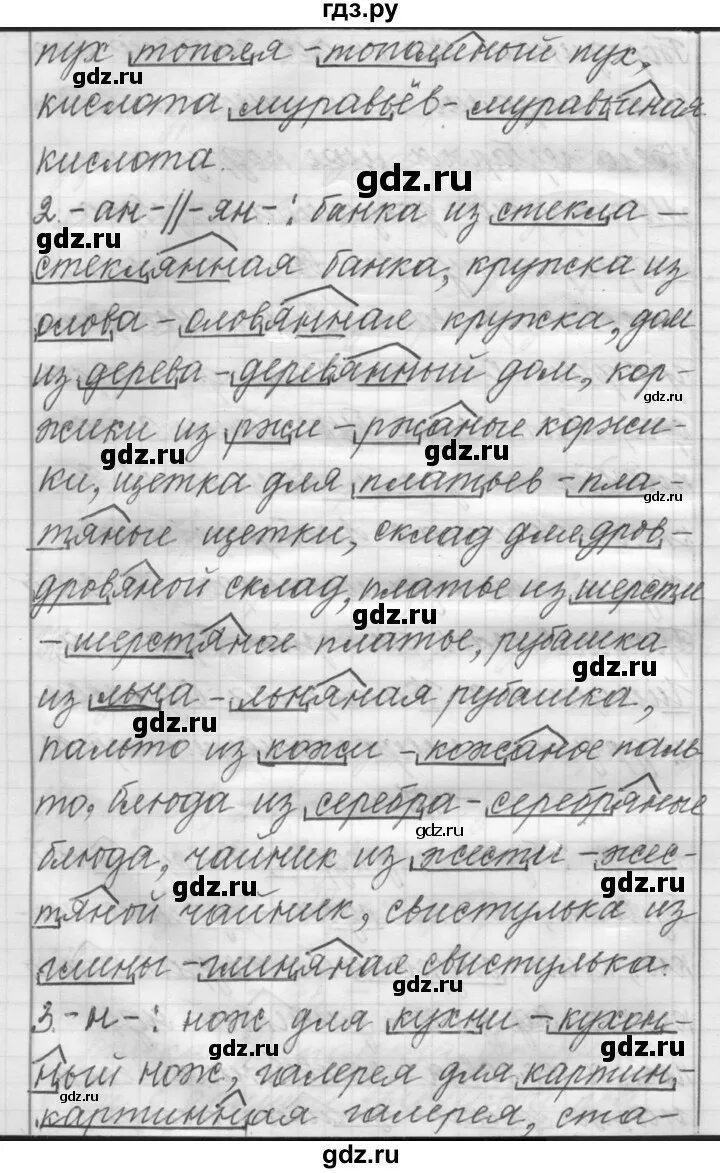 гдз.ру
пух тополя - тополиный пух,
gdz.ru
gdz.ru
кислота муравьёв - муравьиная
кислота.
gdz.ru
2. -ан-//-ян-: банка из стекла -
gdz.ru
стеклянная банка, кружка из
gdz.ru
олова - оловянная кружка, дом
gdz.ru
из дерева - деревянный дом, кор-
gdz.ru
жики из ржи - ржаные коржи-
gdz.ru
gdz.ru
ки, щетка для платьев - пла-
gdz.ru
тяные щетки, склад для дров -
дровяной склад, платье из шерсти
gdz.ru
gdz.ru
- шерстяное платье, рубашка
gdz.ru
из льна - льняная рубашка,
gdz.ru
пальто из кожи - кожаное паль-
то, блюда из серебра - серебряные
gdz.ru
блюда, чайник из жести - жес-
gdz.ru
gdz.ru
тяной чайник, свистулька из
глины - глиняная свистулька.
gdz.ru
3. -н-: нож для кухни - кухон-
gdz.ru
gdz.ru
ный нож, галерея для картин -
gdz.ru
картинная галерея, ста-
gdz.ru